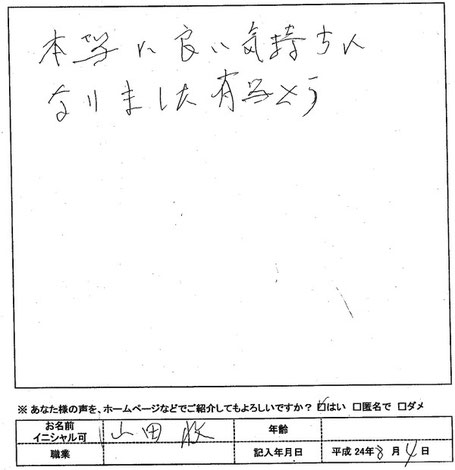 本当に良い気持ちに
なりました有難とう
※ あなた様の声を、ホームページなどでご紹介してもよろしいですか？ ☑はい ☐匿名で ☐ダメ
お名前
イニシャル可
山田
年齢
職業
記入年月日
平成 24年 8 月 4 日